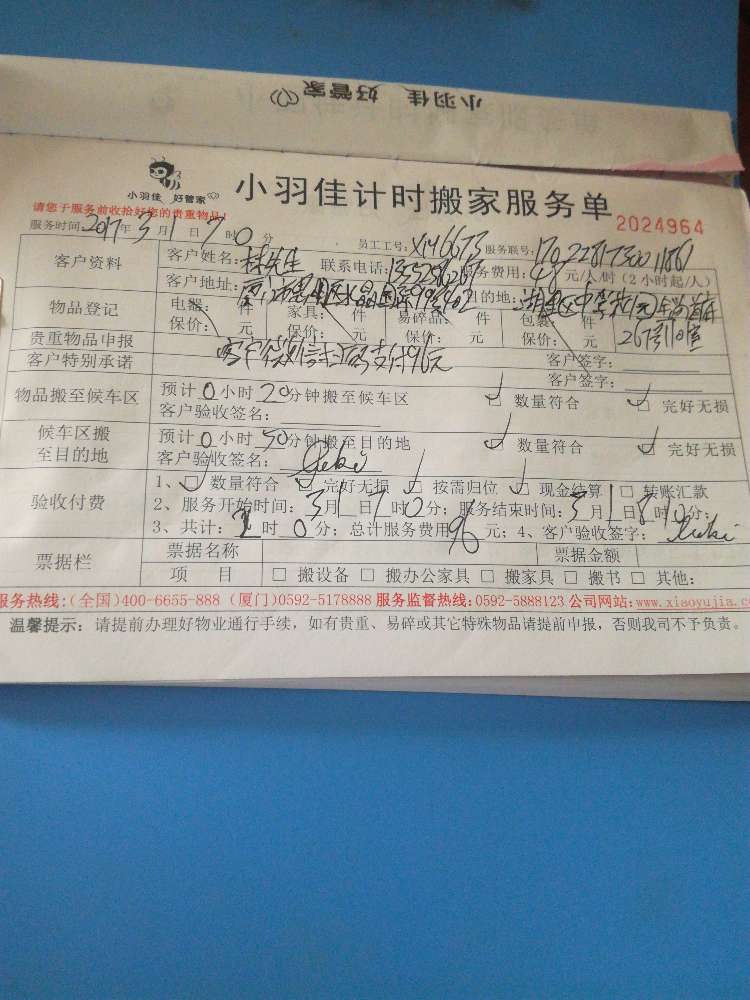 小羽佳 好管家
小羽佳 好管家
小羽佳计时搬家服务单
2024964
请您于服务前收拾好您的贵重物品！
服务时间：2017年3月1日7时0分 员工工号：XM6673 服务联号：
客户资料 客户姓名：林先生 联系电话： 服务费用：48元/人/时（2小时起/人）
客户地址： 目的地：
物品登记 电器： 件 家具： 件 易碎品： 件 包装： 件
保价： 元 保价： 元 保价： 元 保价： 元
贵重物品申报 客户签字：
客户特别承诺 客户签字：
物品搬至候车区 预计0小时20分钟搬至候车区 ☑ 数量符合 ☑ 完好无损
客户验收签名：
候车区搬至目的地 预计0小时50分钟搬至目的地 ☑ 数量符合 ☑ 完好无损
客户验收签名：
验收付费 1、☑ 数量符合 ☑ 完好无损 ☑ 按需归位 ☑ 现金结算 □ 转账汇款
2、服务开始时间：3月1日7时0分；服务结束时间：3月1日8时0分；
3、共计： 时0分；总计服务费用96元；4、客户验收签字：
票据栏 票据名称 票据金额
项 目 □ 搬设备 □ 搬办公家具 □ 搬家具 □ 搬书 □ 其他：
服务热线：(全国)400-6655-888 (厦门)0592-5178888 服务监督热线：0592-5888123 公司网站：www.xiaoyujia.com
温馨提示：请提前办理好物业通行手续，如有贵重、易碎或其它特殊物品请提前申报，否则我司不予负责。